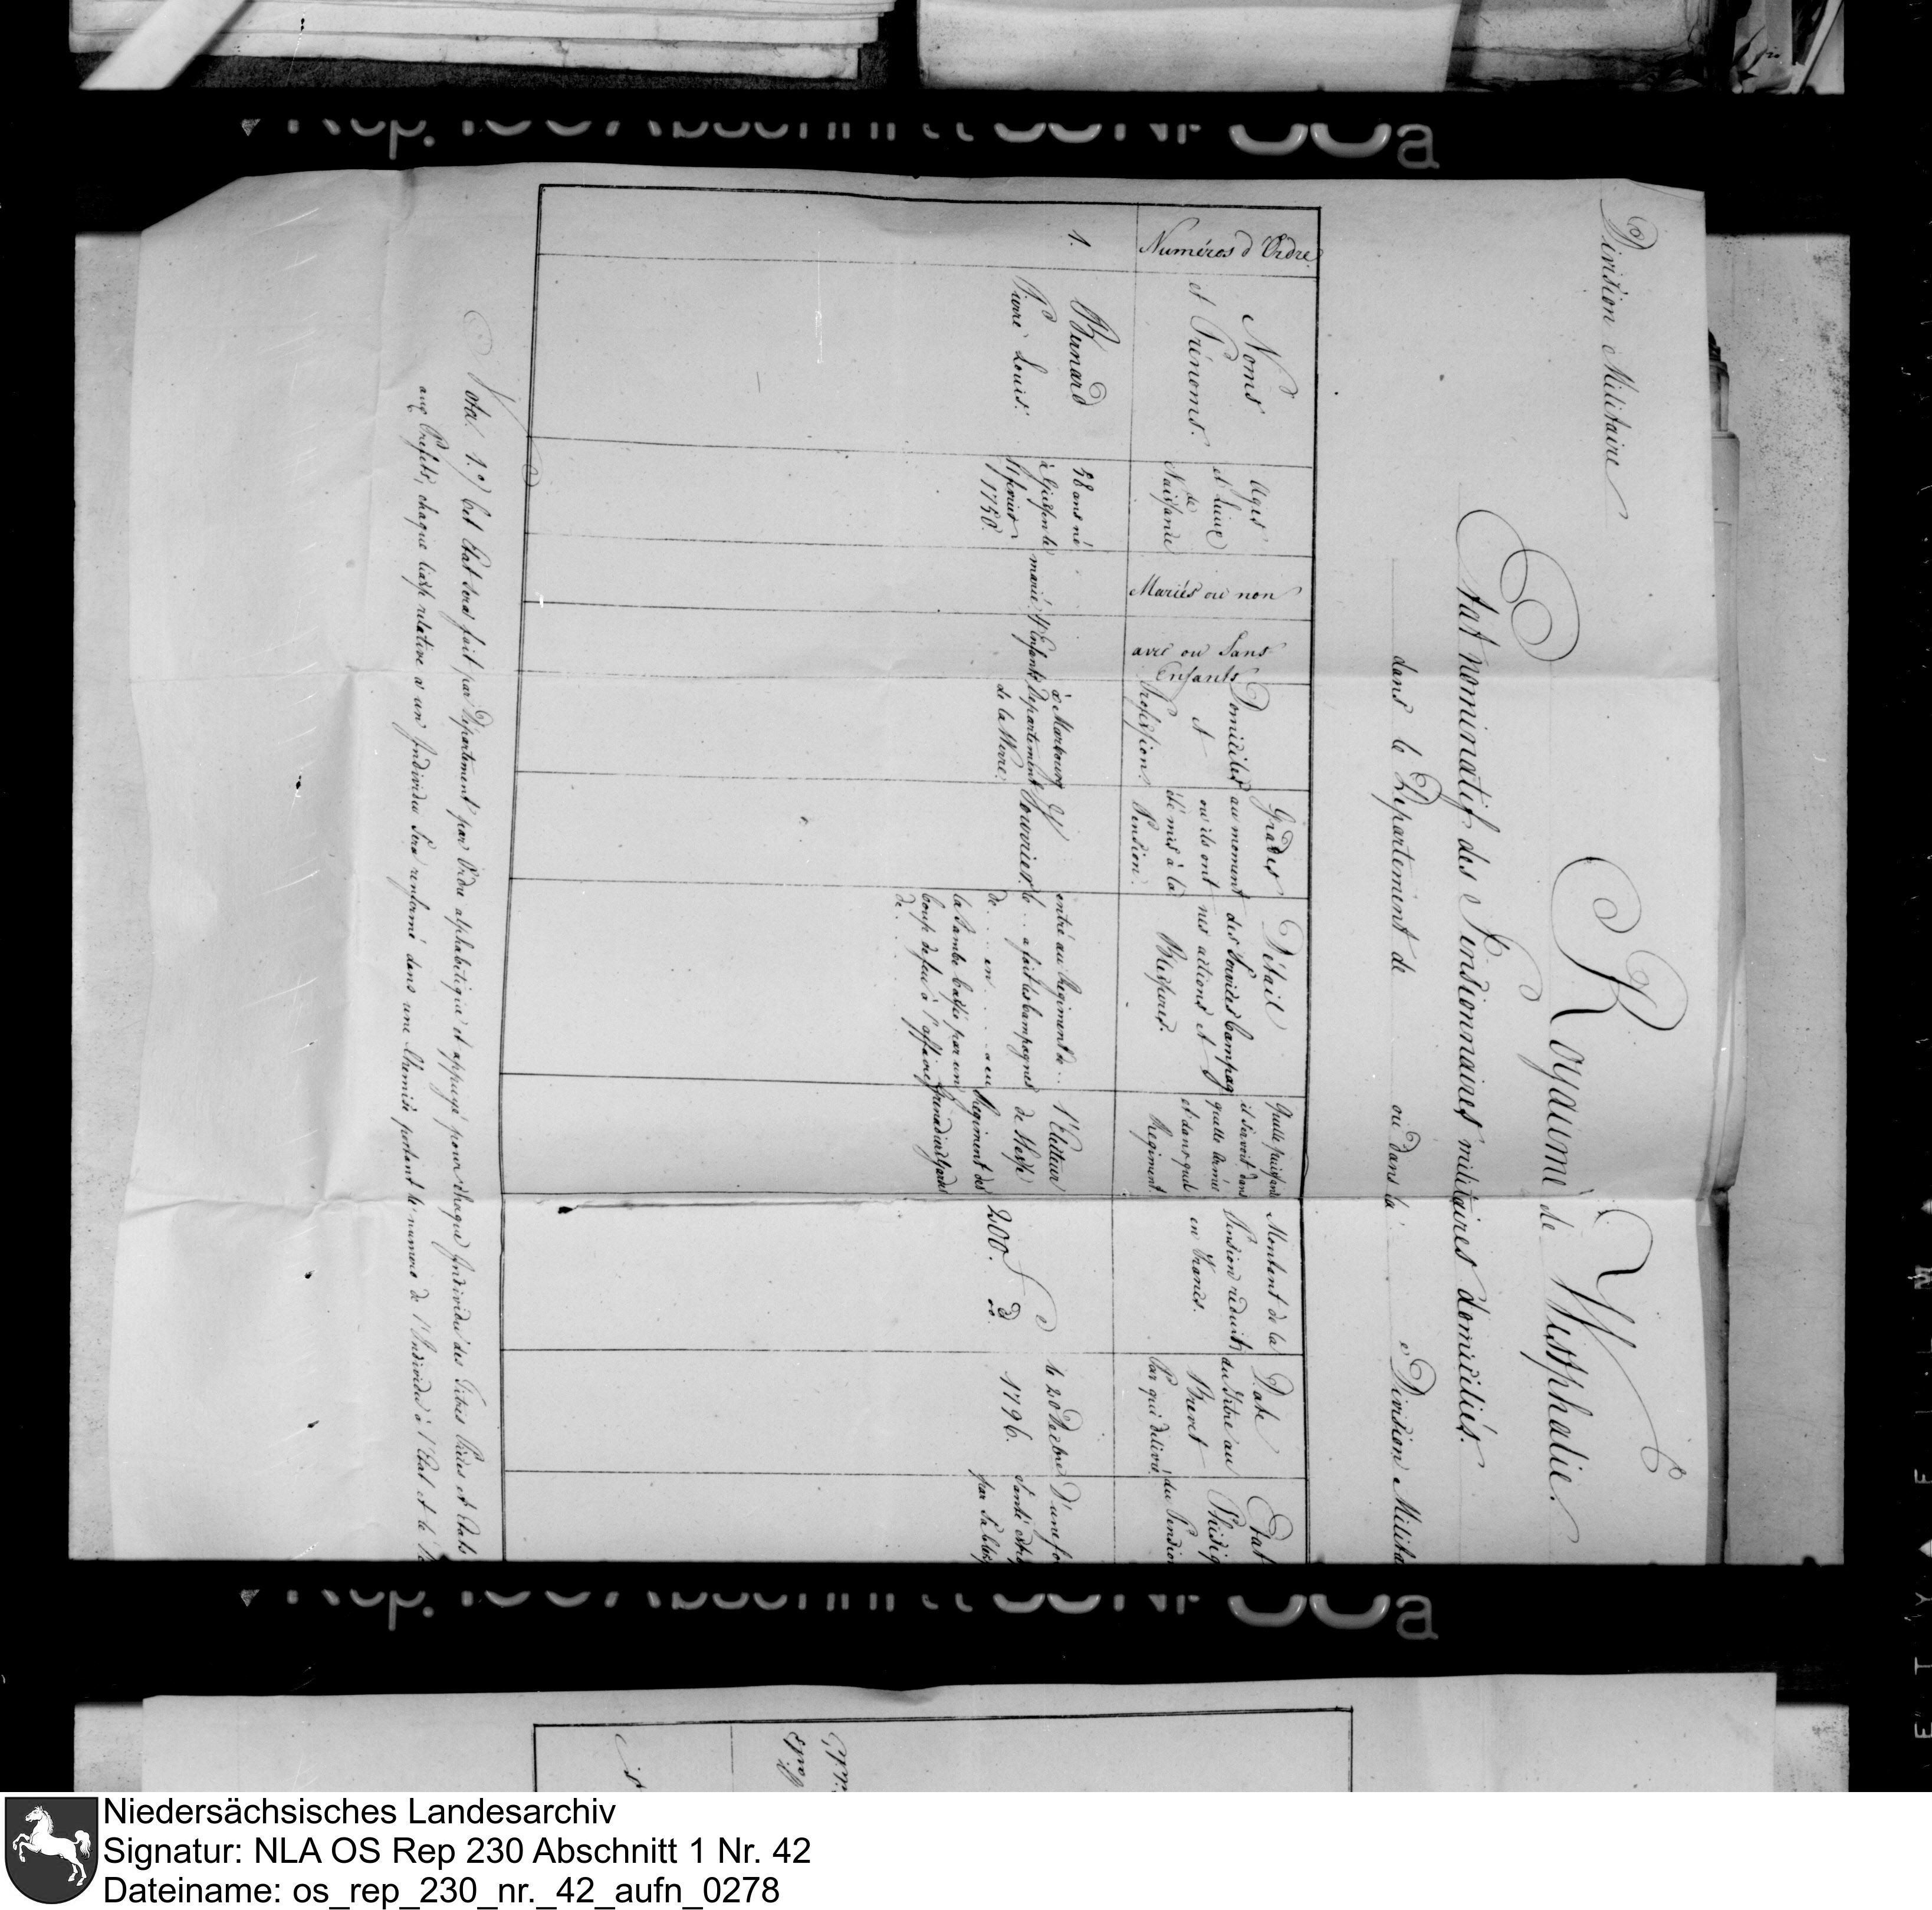 Division Militaire
Royaume de Westphalie.
Etat nominatif des Pensionnaires militaires domiciliés.
dans le Département de ou dans la e Division Milita
Numéros d'Ordre
Noms
et Prénoms.
Ages
et Lieux
de
Naissance
Mariés ou non
avec ou Sans
Enfants
Domiciles
et
Profession.
Grades
au moment
où ils ont
été mis à la
Pension.
Détail
des Services Campag
nes actions et
Blessures.
Quelle puissance
il servoit dans
quelle armée
et dans quel
Regiment
Montant de la
Pension réduit
en Francs.
Date
du Titre au
Brevet
Par qui délivré
Etat
Phisiq
du Pension
1.
Bernard
Pierre Louis.
58 ans né
à Giessen le
11 fevrier
1750.
marié
4 Enfants
à Marbourg
Departement
de la Werre.
Fourrier.
entré au Regiment de ..
le .. a fait les Campagnes
de ... en ... a eu
la Jambe cassée par un
coup de feu à l'affaire
de ...
l'Electeur
de Hesse
Regiment des
Grenadiers Gardes
200. f
le 20 Decbre
1796.
D'une fo
Santé
par Sa bless
Nota. 1.o) Cet Etat sera fait par Département par Ordre alphabétique et appuyé pour chaque Individu des Titres Pièces et Etats
aux Prefets, chaque liasse relative à un Individu Sera renfermé dans une Chemise portant le numero de l'Individu à l'Etat et le
Rep. 100 Abschnitt
a
Rep. 100 Abschnitt
a
Niedersächsisches Landesarchiv
Signatur: NLA OS Rep 230 Abschnitt 1 Nr. 42
Dateiname: os_rep_230_nr._42_aufn_0278